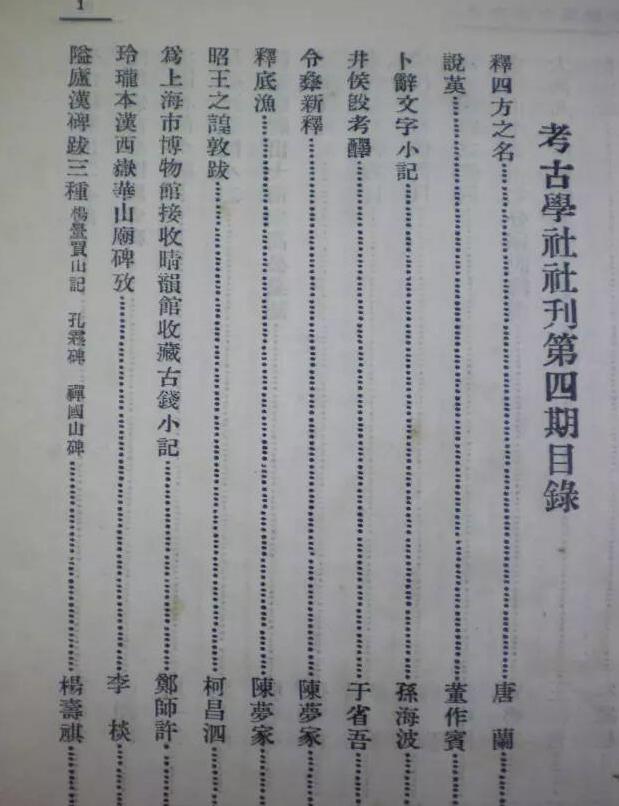 1
考古學社社刊第四期目錄
釋四方之名 唐蘭
說萸 董作賓
卜辭文字小記 孫海波
井侯𣪘考釋 于省吾
令彝新釋 陳夢家
釋底漁 陳夢家
昭王之諻敦跋 柯昌泗
爲上海市博物館接收晴韻館收藏古錢小記 鄭師許
玲瓏本漢西嶽華山廟碑攷 李棪
隘廬漢碑跋三種 楊量買山記 孔靄碑 禪國山碑 楊壽祺